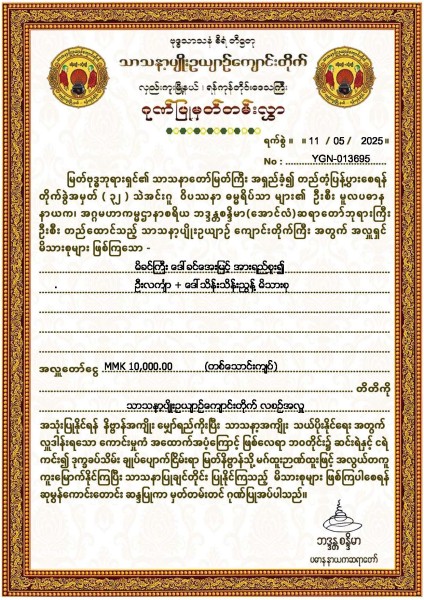 ဗုဒ္ဓသာသနံ စိရံ တိဋ္ဌတု
သာသနာ့ပျိုးဥယျာဉ်ကျောင်းတိုက်
လှည်းကူးမြို့နယ်၊ ရန်ကုန်တိုင်းဒေသကြီး
ဂုဏ်ပြုမှတ်တမ်းလွှာ
ရက်စွဲ ။ ။ 11 / 05 / 2025။
No : YGN-013695
မြတ်ဗုဒ္ဓဘုရားရှင်၏ သာသနာတော်မြတ်ကြီး အရှည်ခံ၍ တည်တံ့ပြန့်ပွားစေရန်
တိုက်ခွဲအမှတ် ( ၃၂ ) သဲအင်းဂူ ဝိပဿနာ ဓမ္မရိပ်သာ များ၏ ဦးစီး မူလပဓာန
နာယက၊ အဂ္ဂမဟာကမ္မဋ္ဌာနာစရိယ ဘဒ္ဒန္တစန္ဒိမာ(အောင်လံ)ဆရာတော်ဘုရားကြီး
ဦးစီး တည်ထောင်သည့် သာသနာ့ပျိုးဥယျာဉ် ကျောင်းတိုက်ကြီး အတွက် အလှူရှင်
မိသားစုများ ဖြစ်ကြသော -
မိခင်ကြီး ဒေါ်ခင်အေးမြင့် အားရည်စူး၍
ဦးလင်္ကျာ + ဒေါ်သိန်းသိန်းညွန့် မိသားစု
အလှူတော်ငွေ MMK 10,000.00 (တစ်သောင်းကျပ်)
တိတိကို
သာသနာ့ပျိုးဥယျာဉ်ကျောင်းတိုက် လစဉ်အလှူ
အသုံးပြုနိုင်ရန် နိဗ္ဗာန်အကျိုး မျှော်ရည်ကိုးပြီး သာသနာ့အကျိုး သယ်ပိုးနိုင်ရေး အတွက်
လှူဒါန်းရသော ကောင်းမှုကံ အထောက်အပံ့ကြောင့် ဖြစ်လေရာ ဘဝတိုင်း၌ ဆင်းရဲနှင့် ငရဲ
ကင်း၍ ဒုက္ခခပ်သိမ်း ချုပ်ပျောက်ငြိမ်းရာ မြတ်နိဗ္ဗာန်သို့ မဂ်ထူးဉာဏ်ထူးဖြင့် အလွယ်တကူ
ကူးမြောက်နိုင်ကြပြီး သာသနာပြုချင်တိုင်း ပြုနိုင်ကြသည့် မိသားစုများ ဖြစ်ကြပါစေရန်
ဆုမွန်ကောင်းတောင်း ဆန္ဒပြုကာ မှတ်တမ်းတင် ဂုဏ်ပြုအပ်ပါသည်။
ဘဒ္ဒန္တစန္ဒိမာ
ပဓာနနာယကဆရာတော်